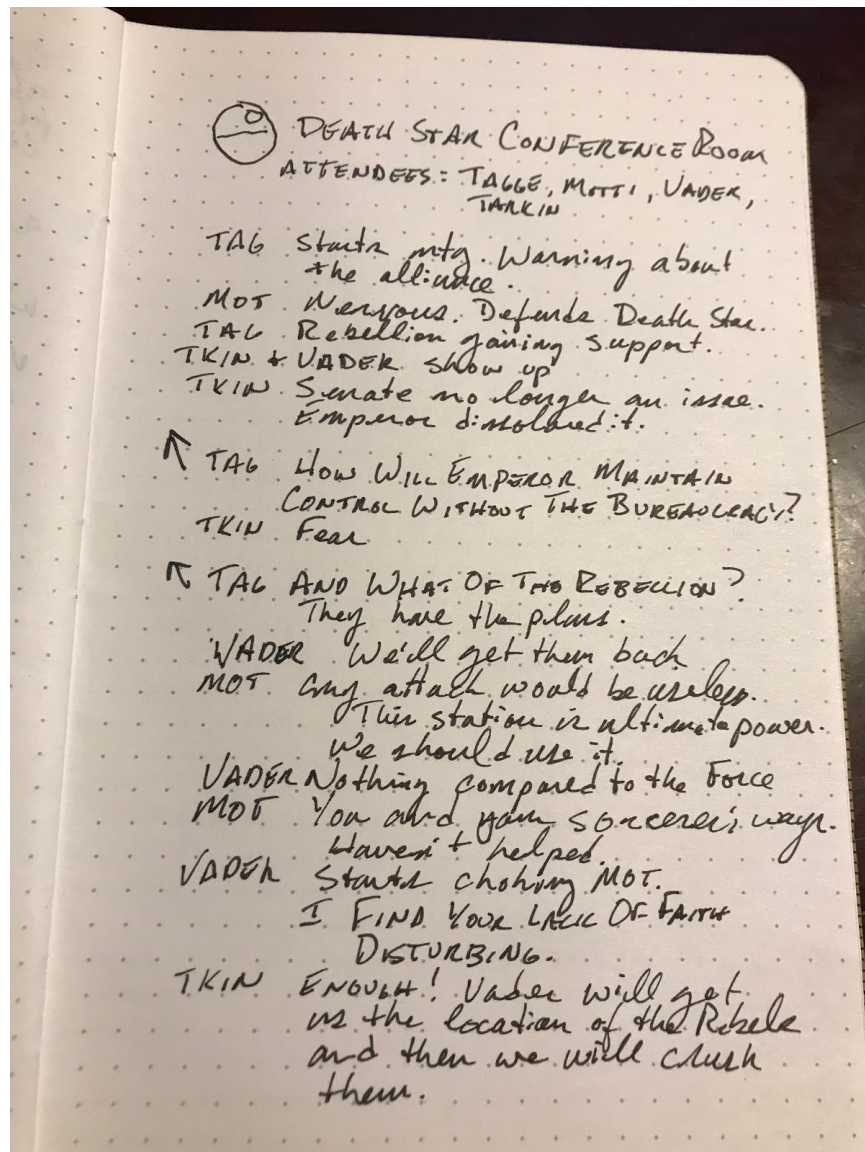 DEATH STAR CONFERENCE ROOM
ATTENDEES: TAGGE, MOTTI, VADER,
TARKIN
TAG Starts mtg. Warning about
the alliance.
MOT Nervous. Defends Death Star.
TAG Rebellion gaining support.
TKIN + VADER show up
TKIN Senate no longer an issue.
Emperor dissolved it.
↑ TAG HOW WILL EMPEROR MAINTAIN
CONTROL WITHOUT THE BUREAUCRACY?
TKIN Fear
↑ TAG AND WHAT OF THE REBELLION?
They have the plans.
VADER We'll get them back
MOT Any attack would be useless.
This station is ultimate power.
We should use it.
VADER Nothing compared to the Force
MOT You and your sorcerer's ways.
Haven't helped.
VADER Starts choking MOT.
I FIND YOUR LACK OF FAITH
DISTURBING.
TKIN ENOUGH! Vader will get
us the location of the Rebels
and then we will crush
them.